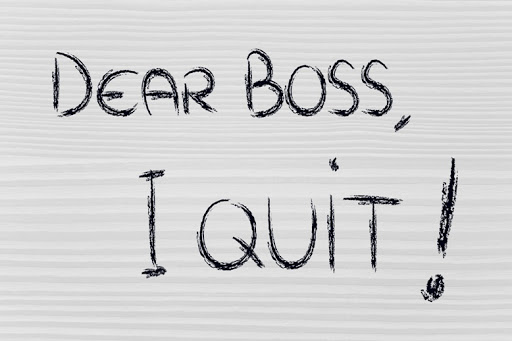 DEAR BOSS,
I QUiT!